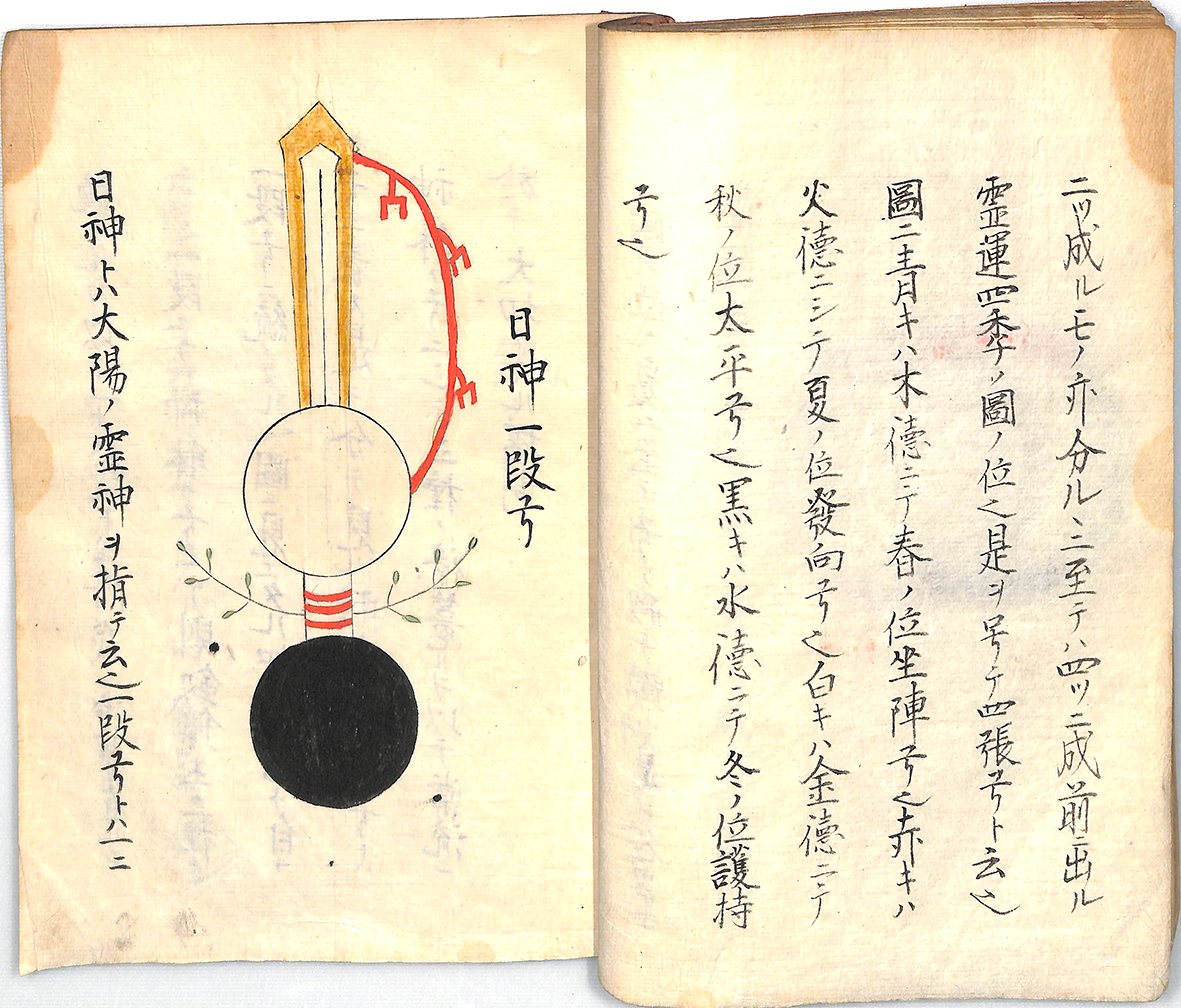 二ツ成ルモノ亦分ルヽニ至テハ四ツニ成前ニ出ル
霊運四季ノ圖ノ位也是ヲ号テ四張弓ト云也
圖ニ青キハ木德ニテ春ノ位坐陣弓也赤キハ
火德ニシテ夏ノ位發向弓也白キハ金德ニテ
秋ノ位太平弓也黒キハ水德ニテ冬ノ位護持
弓也
日神一段弓
日神トハ大陽ノ霊神ヲ指テ云也一段弓トハ一ニ